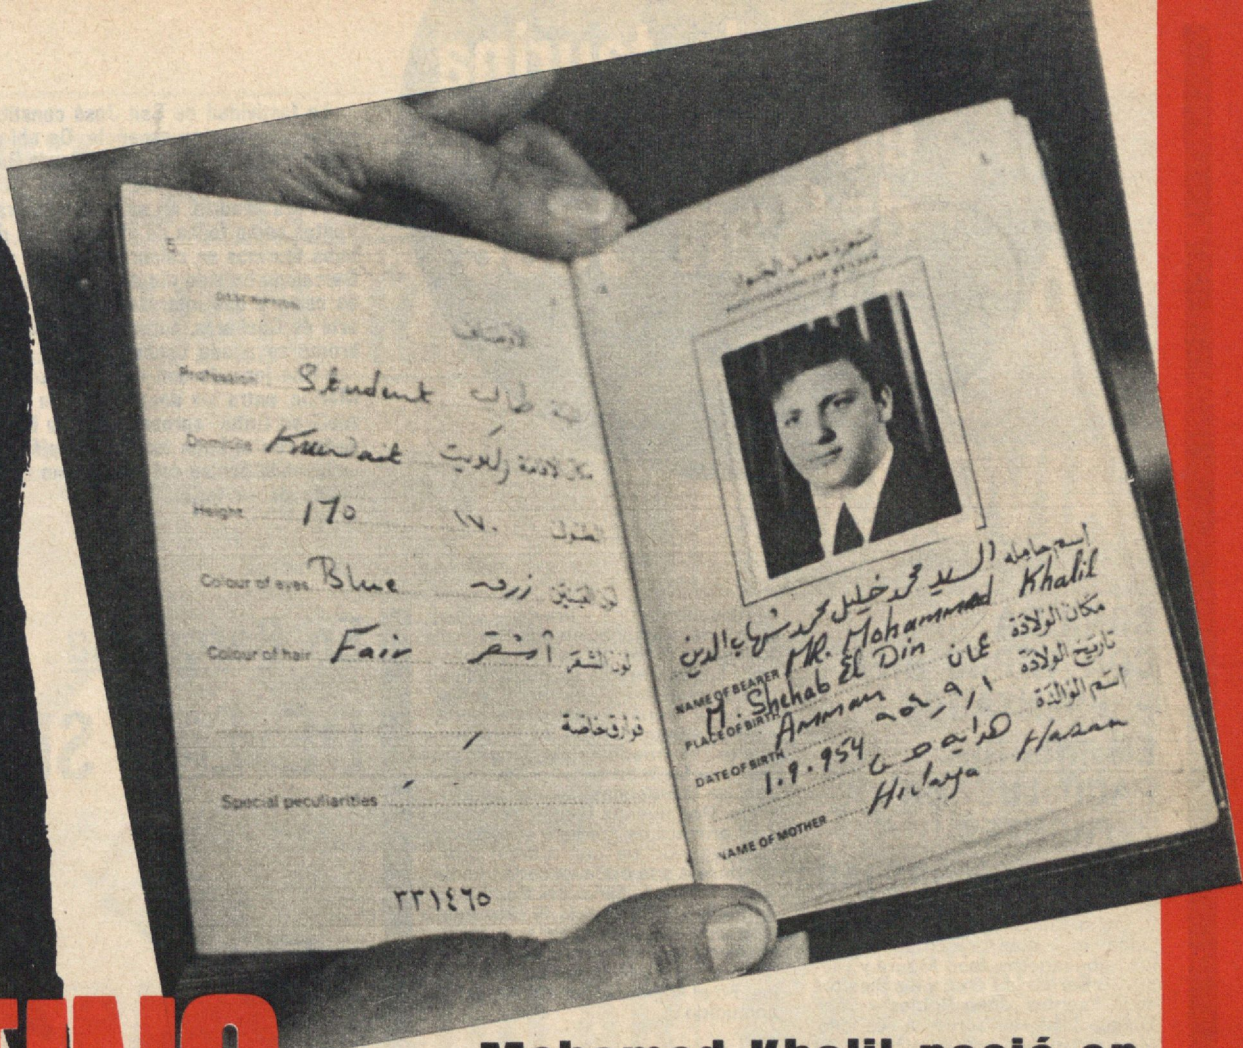 5
DESCRIPTION الأوصاف
Profession Student طالب
Domicile Kuwait مكان الاقامة الكويت
Height 170 ١٧٠ الطول
Colour of eyes Blue لون العينين زرقه
Colour of hair Fair لون الشعر أشقر
فوارق خاصة
Special peculiarities
٣٣١٤٦٥
صورة حامل الجواز
اسم حامله السيد محمد خليل محمد شهاب الدين
NAME OF BEARER MR. Mohammed Khalil
M. Shehab El Din
مكان الولادة عمان
PLACE OF BIRTH Amman
تاريخ الولادة ٩٥٤,٩,١
DATE OF BIRTH 1.9.954
اسم الوالدة هدايه حسن
NAME OF MOTHER Hidaya Hasan
TING
Mohamed Khalil nació en